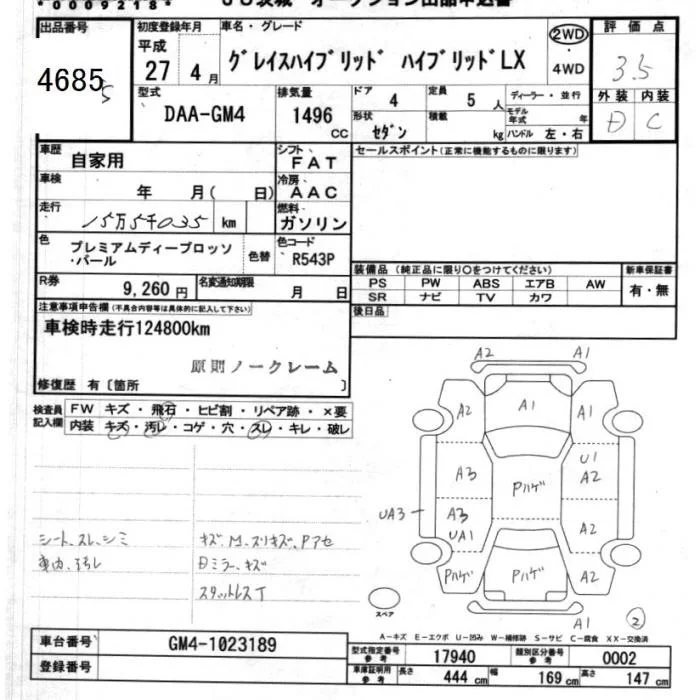 *00092182*
JU茨城 オークション出品申込書
出品番号 初度登録年月 車名・グレード 評価点
4685
平成 27 4月
グレイスハイブリッド ハイブリッドLX
2WD ・ 4WD
3.5
型式 DAA-GM4
排気量 1496 CC
ドア 4 定員 5人
形状 セダン 積載 kg
ディーラー・並行
モデル年式 年
ハンドル 左・右
外装 内装
D C
車歴 自家用
シフト FAT
車検 年 月( 日)
冷房 AAC
走行 15万5千035 km
燃料 ガソリン
色 プレミアムディープロッソ・パール 色替
色コード R543P
R券 9,260円 名変通知期限 月 日
セールスポイント(正常に機能するものに限ります)
装備品(純正品に限り○をつけてください) 新車保証書
PS PW ABS エアB AW 有・無
SR ナビ TV カワ
後日品
注意事項申告欄(不具合内容等は具体的に記入して下さい)
車検時走行124800km
原則ノークレーム
修復歴 有〔箇所 〕
検査員記入欄
FW キズ・飛石・ヒビ割・リペア跡・×要
内装 キズ・汚レ・コゲ・穴・スレ・キレ・破レ
シート、スレ、シミ
車内、汚レ
キズ、M、スリキズ、Pアセ
Dミラー、キズ
スタットレスT
A2 A1
A2 A1 A1
U1
A3 Pハゲ A2
UA3 A3
UA1 A2
Pハゲ Pハゲ A2
スペア A1 2
A-キズ E-エクボ U-凹み W-補修跡 S-サビ C-腐食 XX-交換済
車台番号 GM4-1023189
登録番号
型式指定番号 参考 17940 類別区分番号 参考 0002
車庫証明用 参考 長さ 444 cm 幅 169 cm 高さ 147 cm